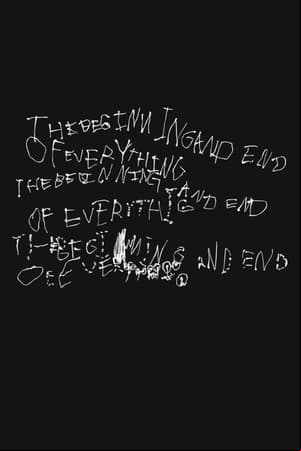 THE BEGINN ING AND END
OF EVERYTHING
THE BEGINNING
AND END
OF EVERYTHING
THE BEGINNING AND END
OF E